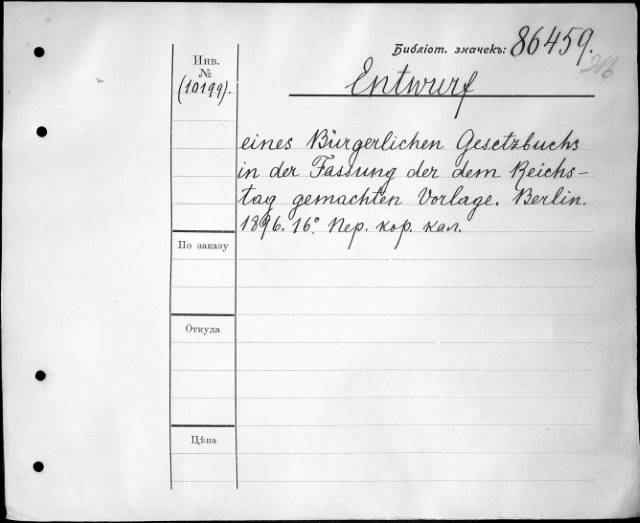 Библіот. значекъ: 86459.
Инв.
№
(10199).
Entwurf
eines Bürgerlichen Gesetzbuchs
in der Fassung der dem Reichs-
tag gemachten Vorlage. Berlin.
1896. 16° Пер. кор. кал.
По заказу
Откуда
Цѣна